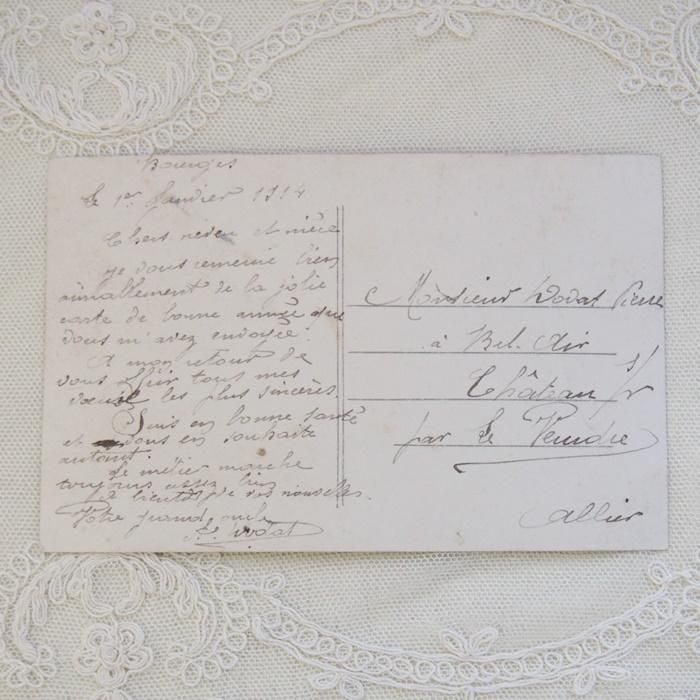 Bourges
le 1er Janvier 1914
Chers neveu et nièce
je vous remercie bien
aimablement de la jolie
carte de bonne année que
vous m'avez envoyée.
A mon retour de
vous offrir tous mes
vœux les plus sincères.
Suis en bonne santé
et vous en souhaite
autant.
Le métier marche
toujours assez bien
A bientôt de vos nouvelles.
Votre grand oncle
Monsieur Dodat Pierre
à Bel. Air
Château s/r
par Le Veudre
Allier